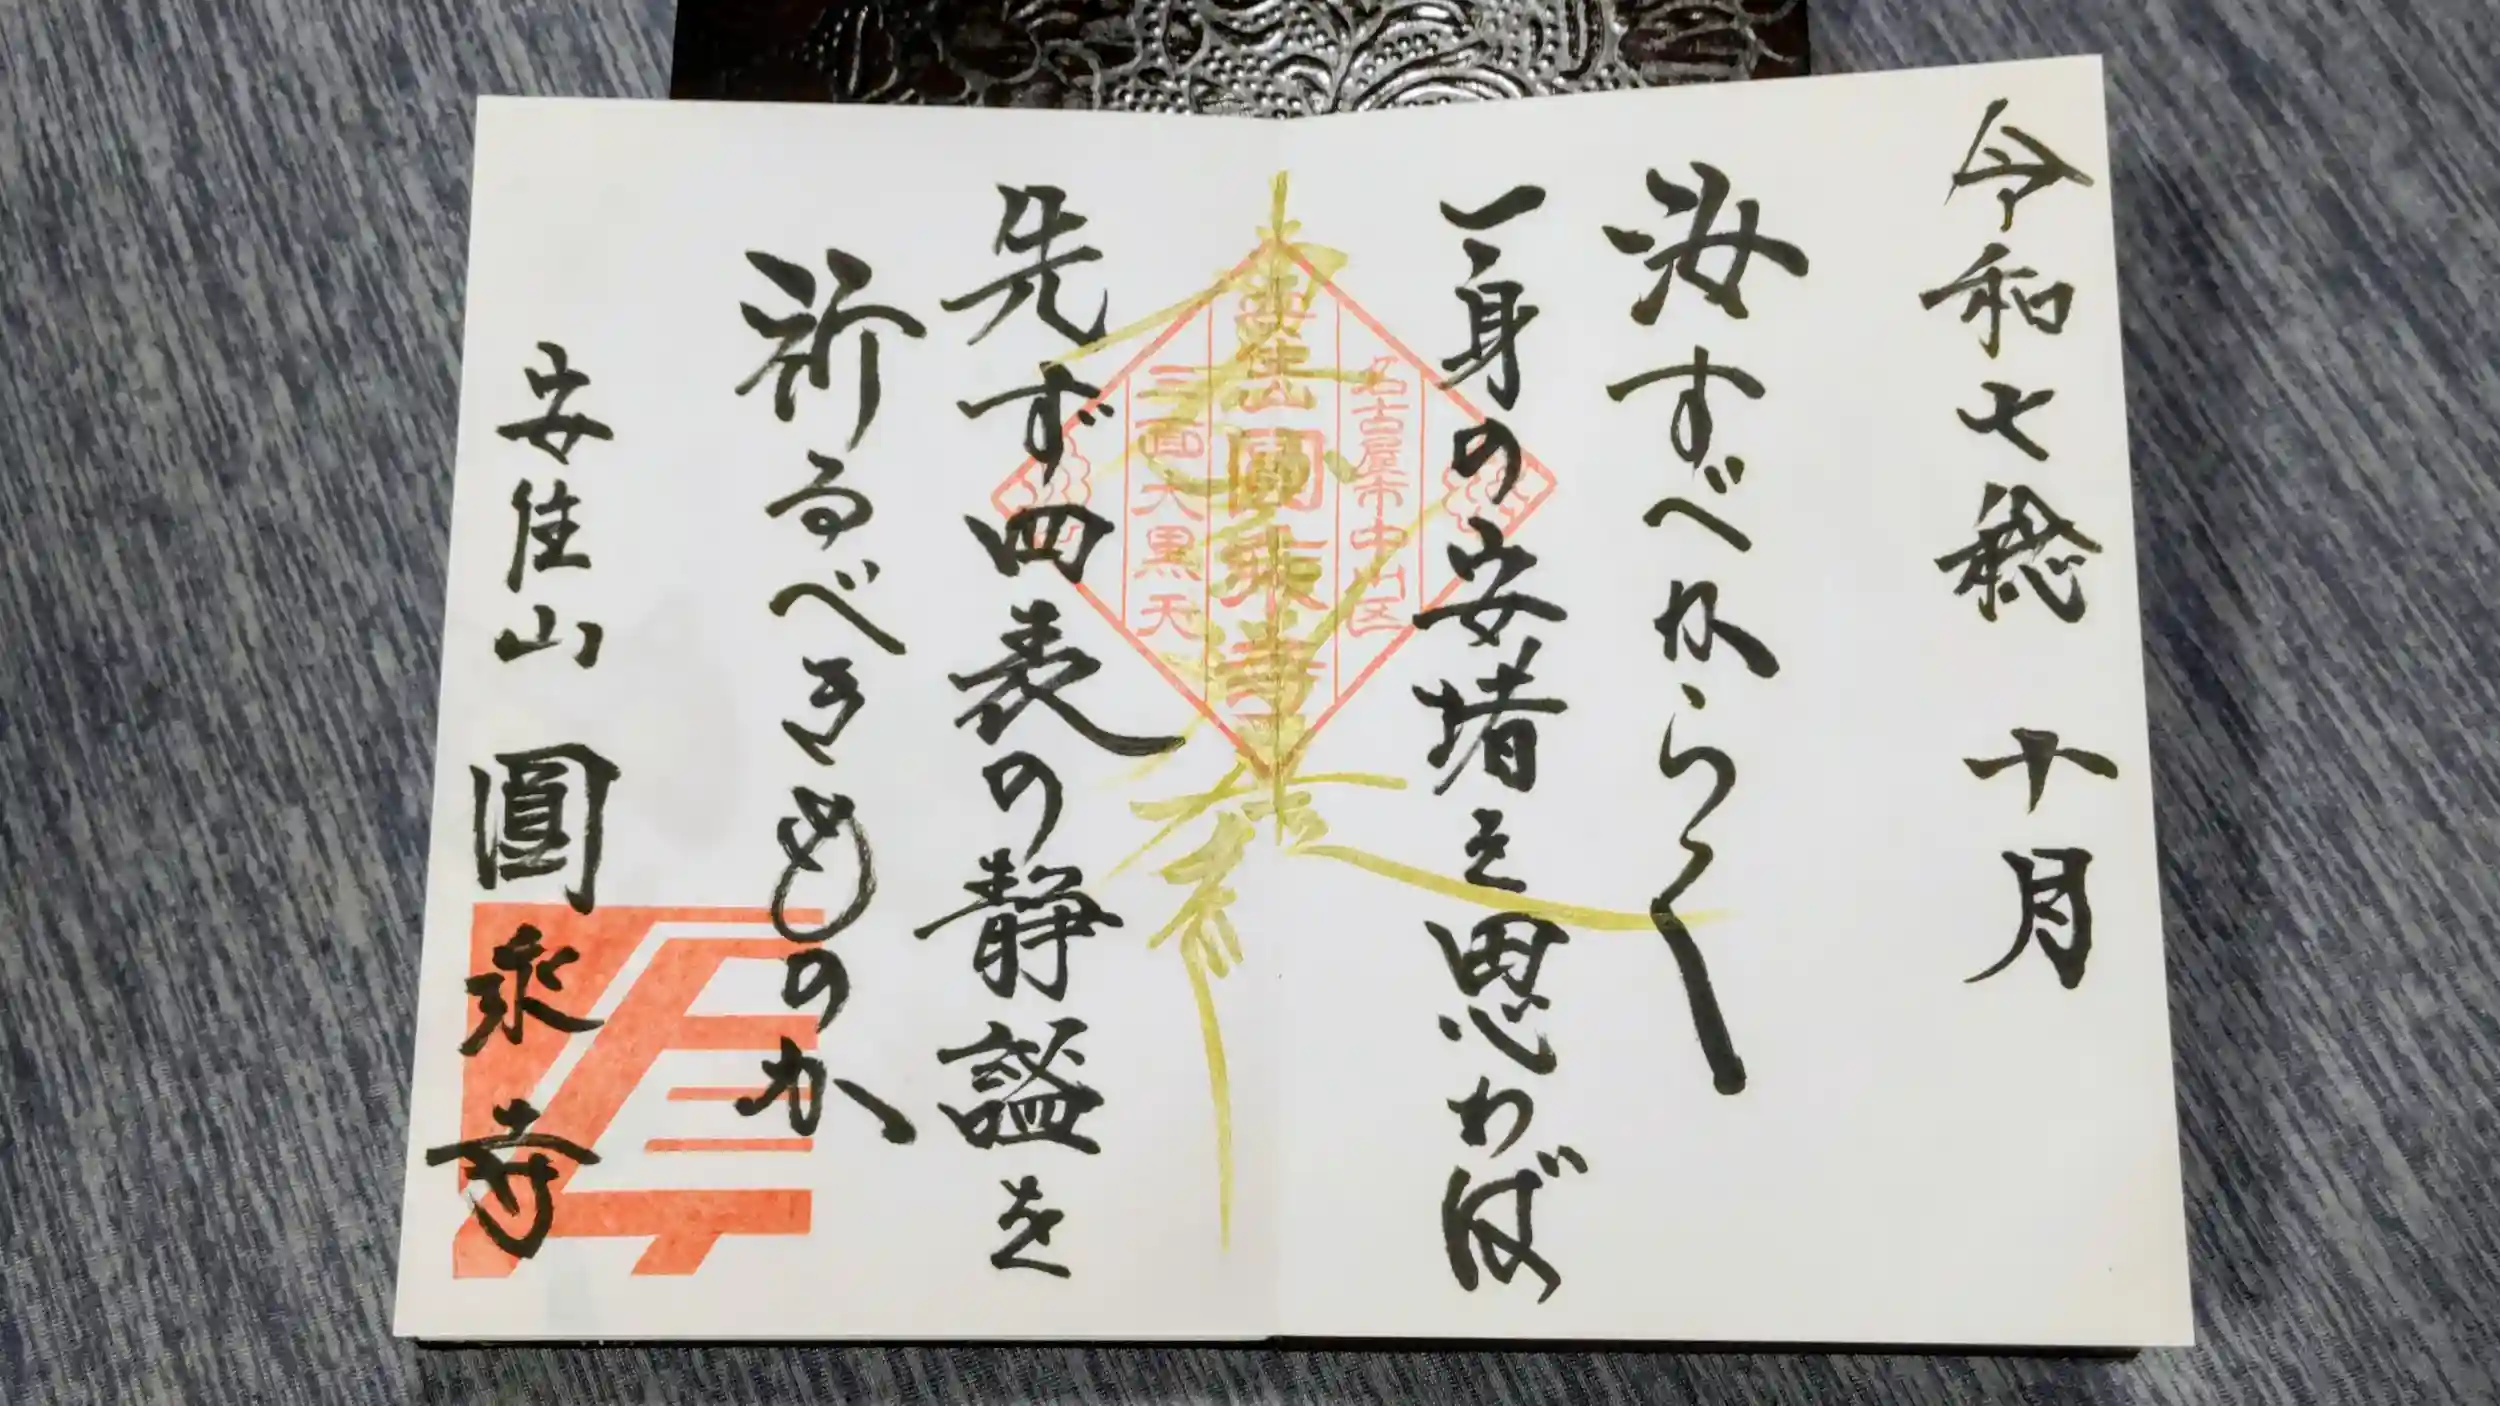 令和七稔 十月
汝すべからく
一身の安堵を思わば
名古屋市中川区
安住山圓乗寺
三面大黒天
先ず四表の静謐を
祈るべきものか
安住山 圓乗寺